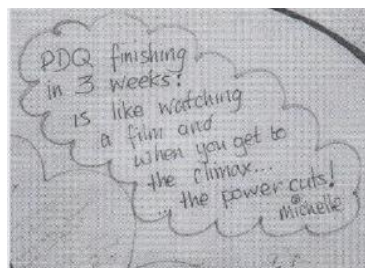 PDQ finishing
in 3 weeks!
is like watching
a film and
when you get to
the climax...
... the power cuts!
michelle